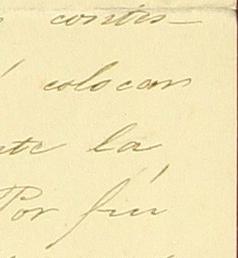 contes-
colocar
nte la
Por fin